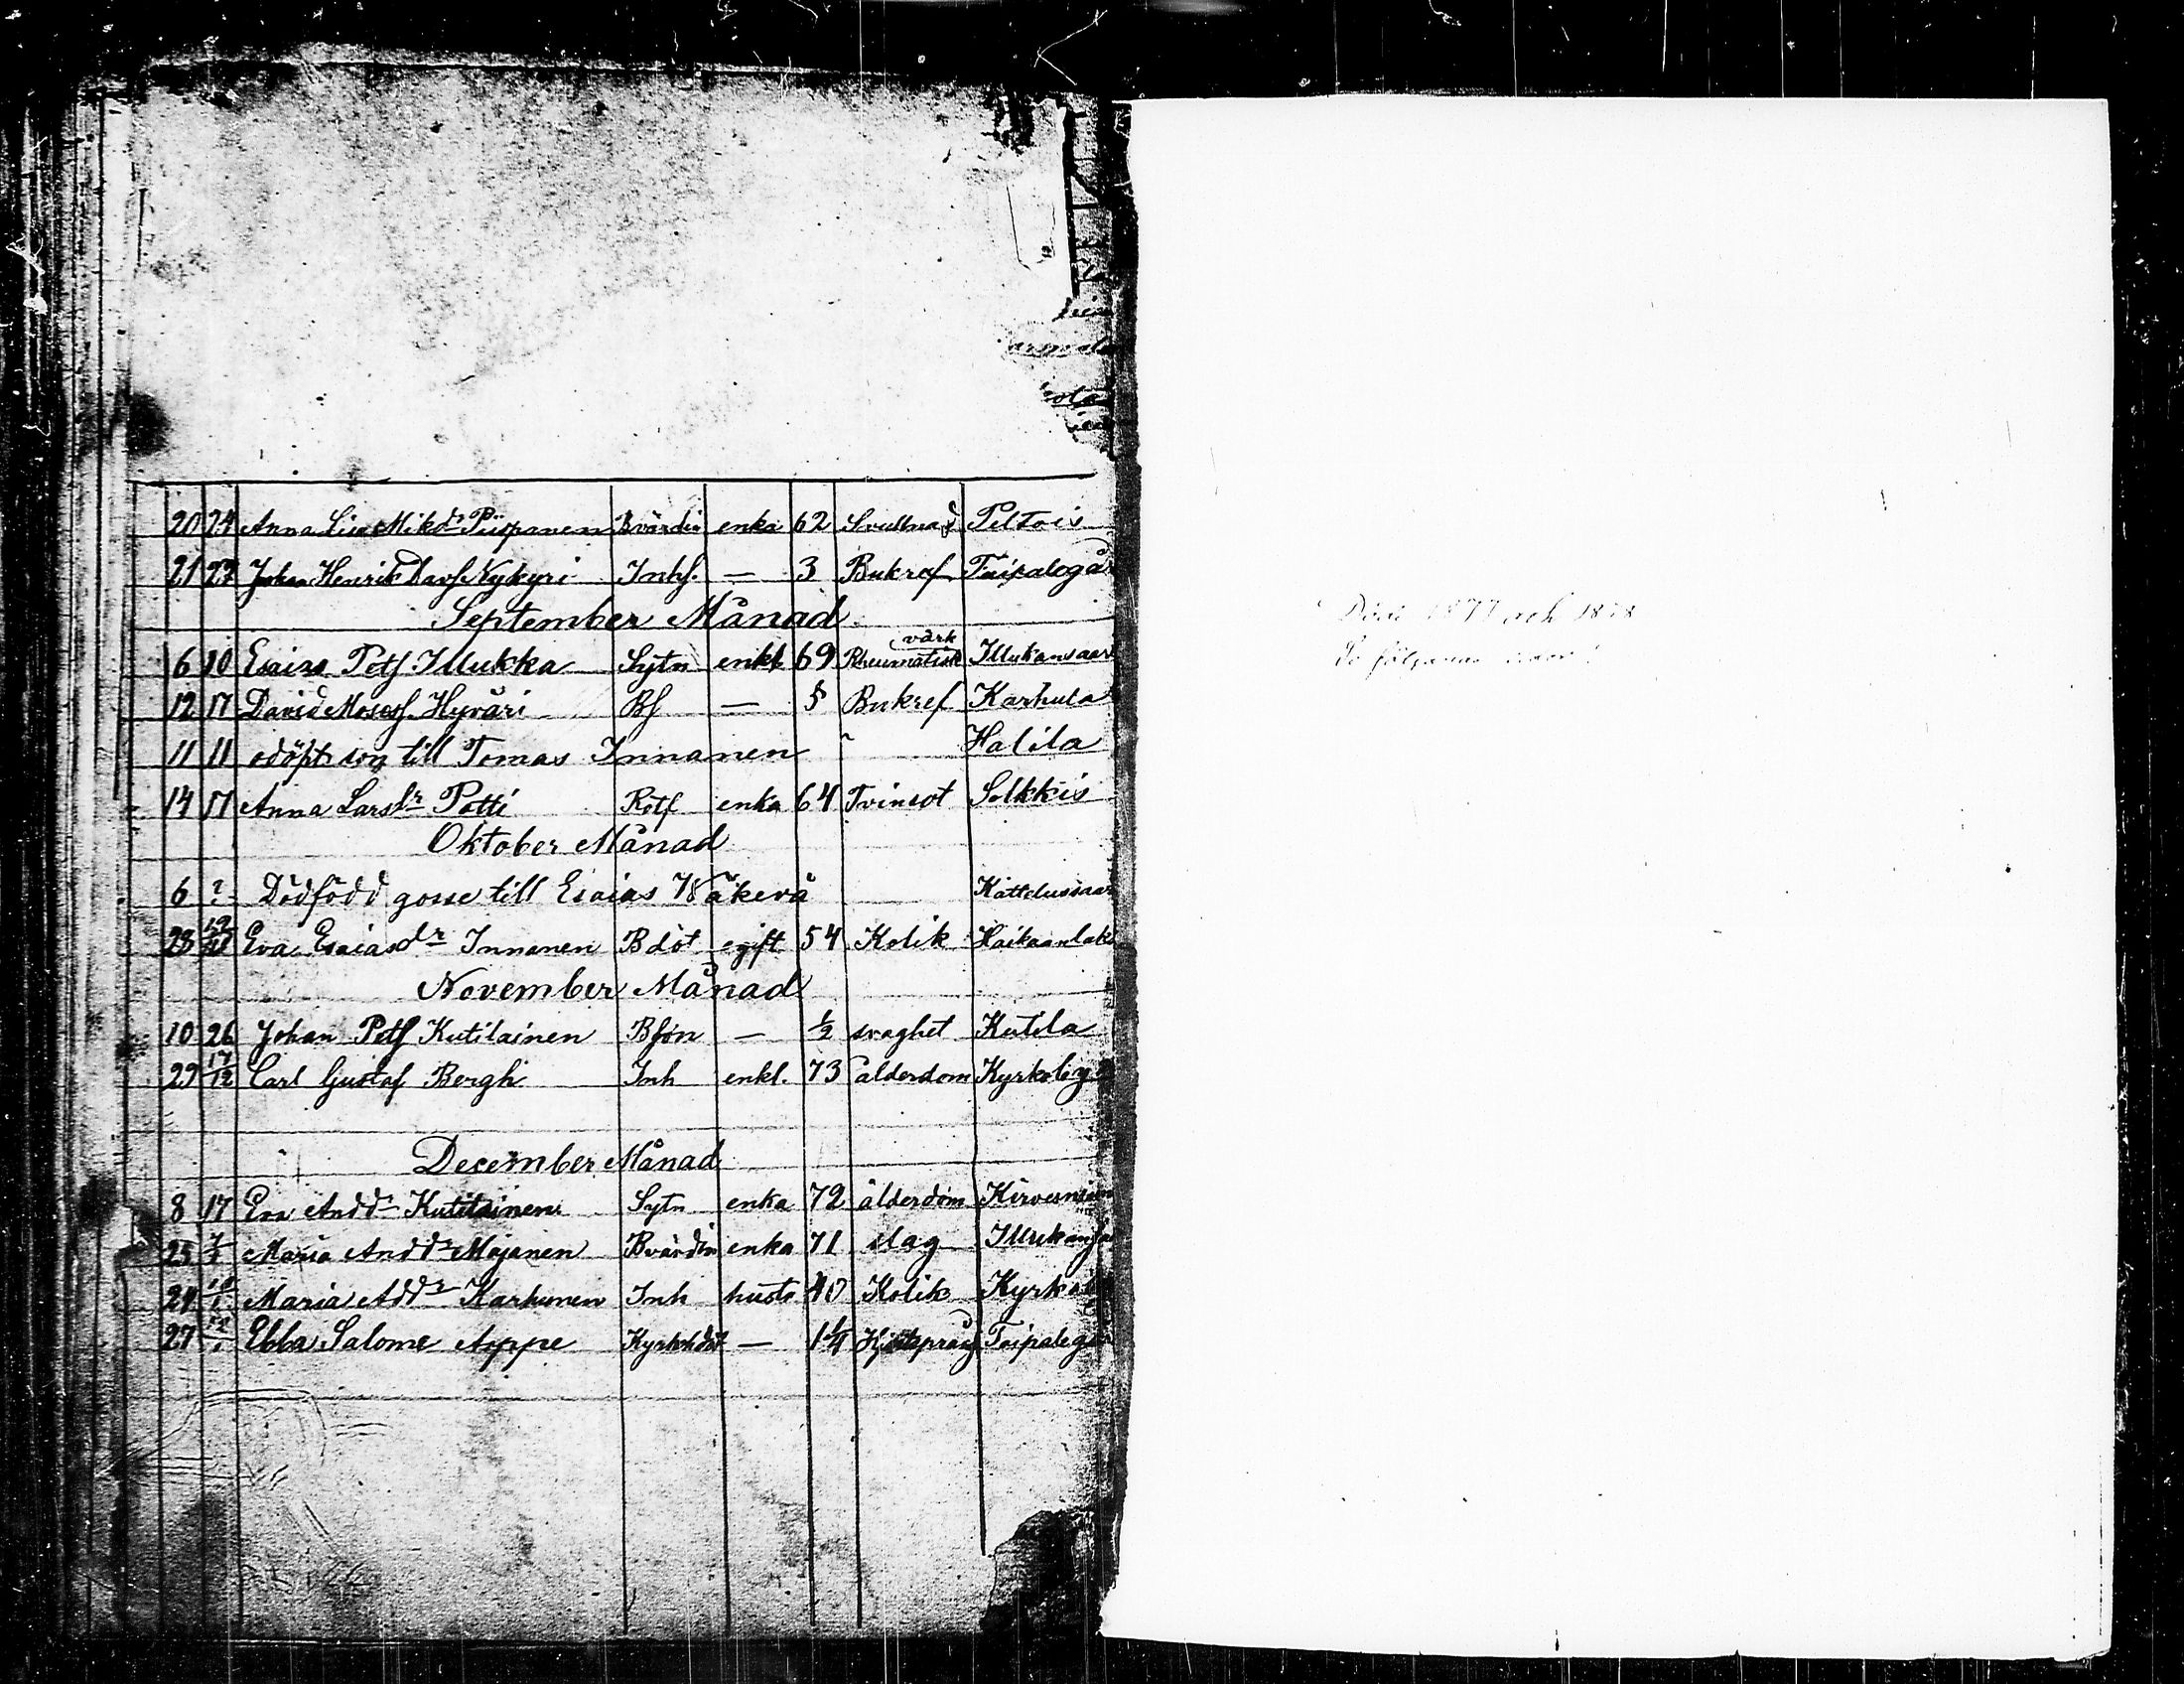 20 24 Anna Lisa Mikdr Piispanen Bvärdin enka 62 Svullnad Peltois
21 27 Johan Henrik Davs Nykyri Inhs. — 3 Bukref Taipalegår
September Månad
6 10 Esaias Pets Illukka Sytn enkl 69 Rheumatisk värk Illukansaar
12 17 David Moses Hyväri Bs — 5 Bukref Karhula
11 11 odöpt son till Tomas Innanen Halila
14 17 Anna Larsdr Potti enka 64 Tvinsot Solkkis
Oktober Månad
6 ? Dödfödd gosse till Esaias Wäkevä Kattelussaar
23 Eva Esaiasdr Innanen Bdot egift 54 Kolik Haikaanlak
November Månad
10 26 Johan Pets Kutilainen Bson — 1/2 svaghet Kutila
29 17/12 Carl Gustaf Bergh Inh enkl. 73 ålderdom Kyrkoby
December Månad
8 17 Eva Anddr Kutilainen Sytn enka 72 ålderdom
25 Maria Anddr Mojanen Bvärdin enka 71 slag Illukansa
24 Maria Addr Karhunen Inh hustr 40 Kolik
27 Ebba Salome Appe — 1 1/4 Taipalegår
Döde 1877 och 1878